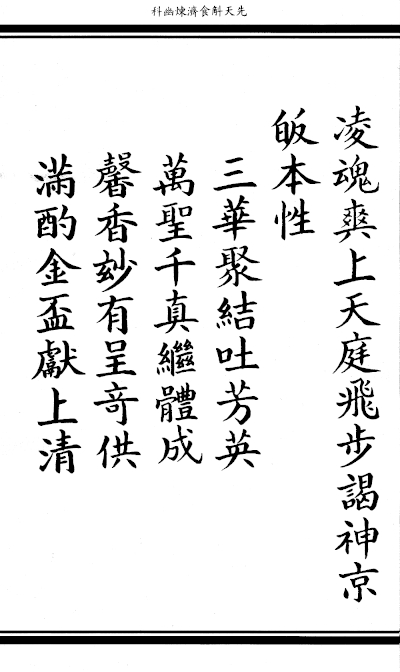 先天斛食濟煉幽科
凌魂爽上天庭飛步謁神京
皈本性
三華聚結吐芳英
萬聖千真繼體成
馨香玅有呈竒供
滿酌金盃獻上清